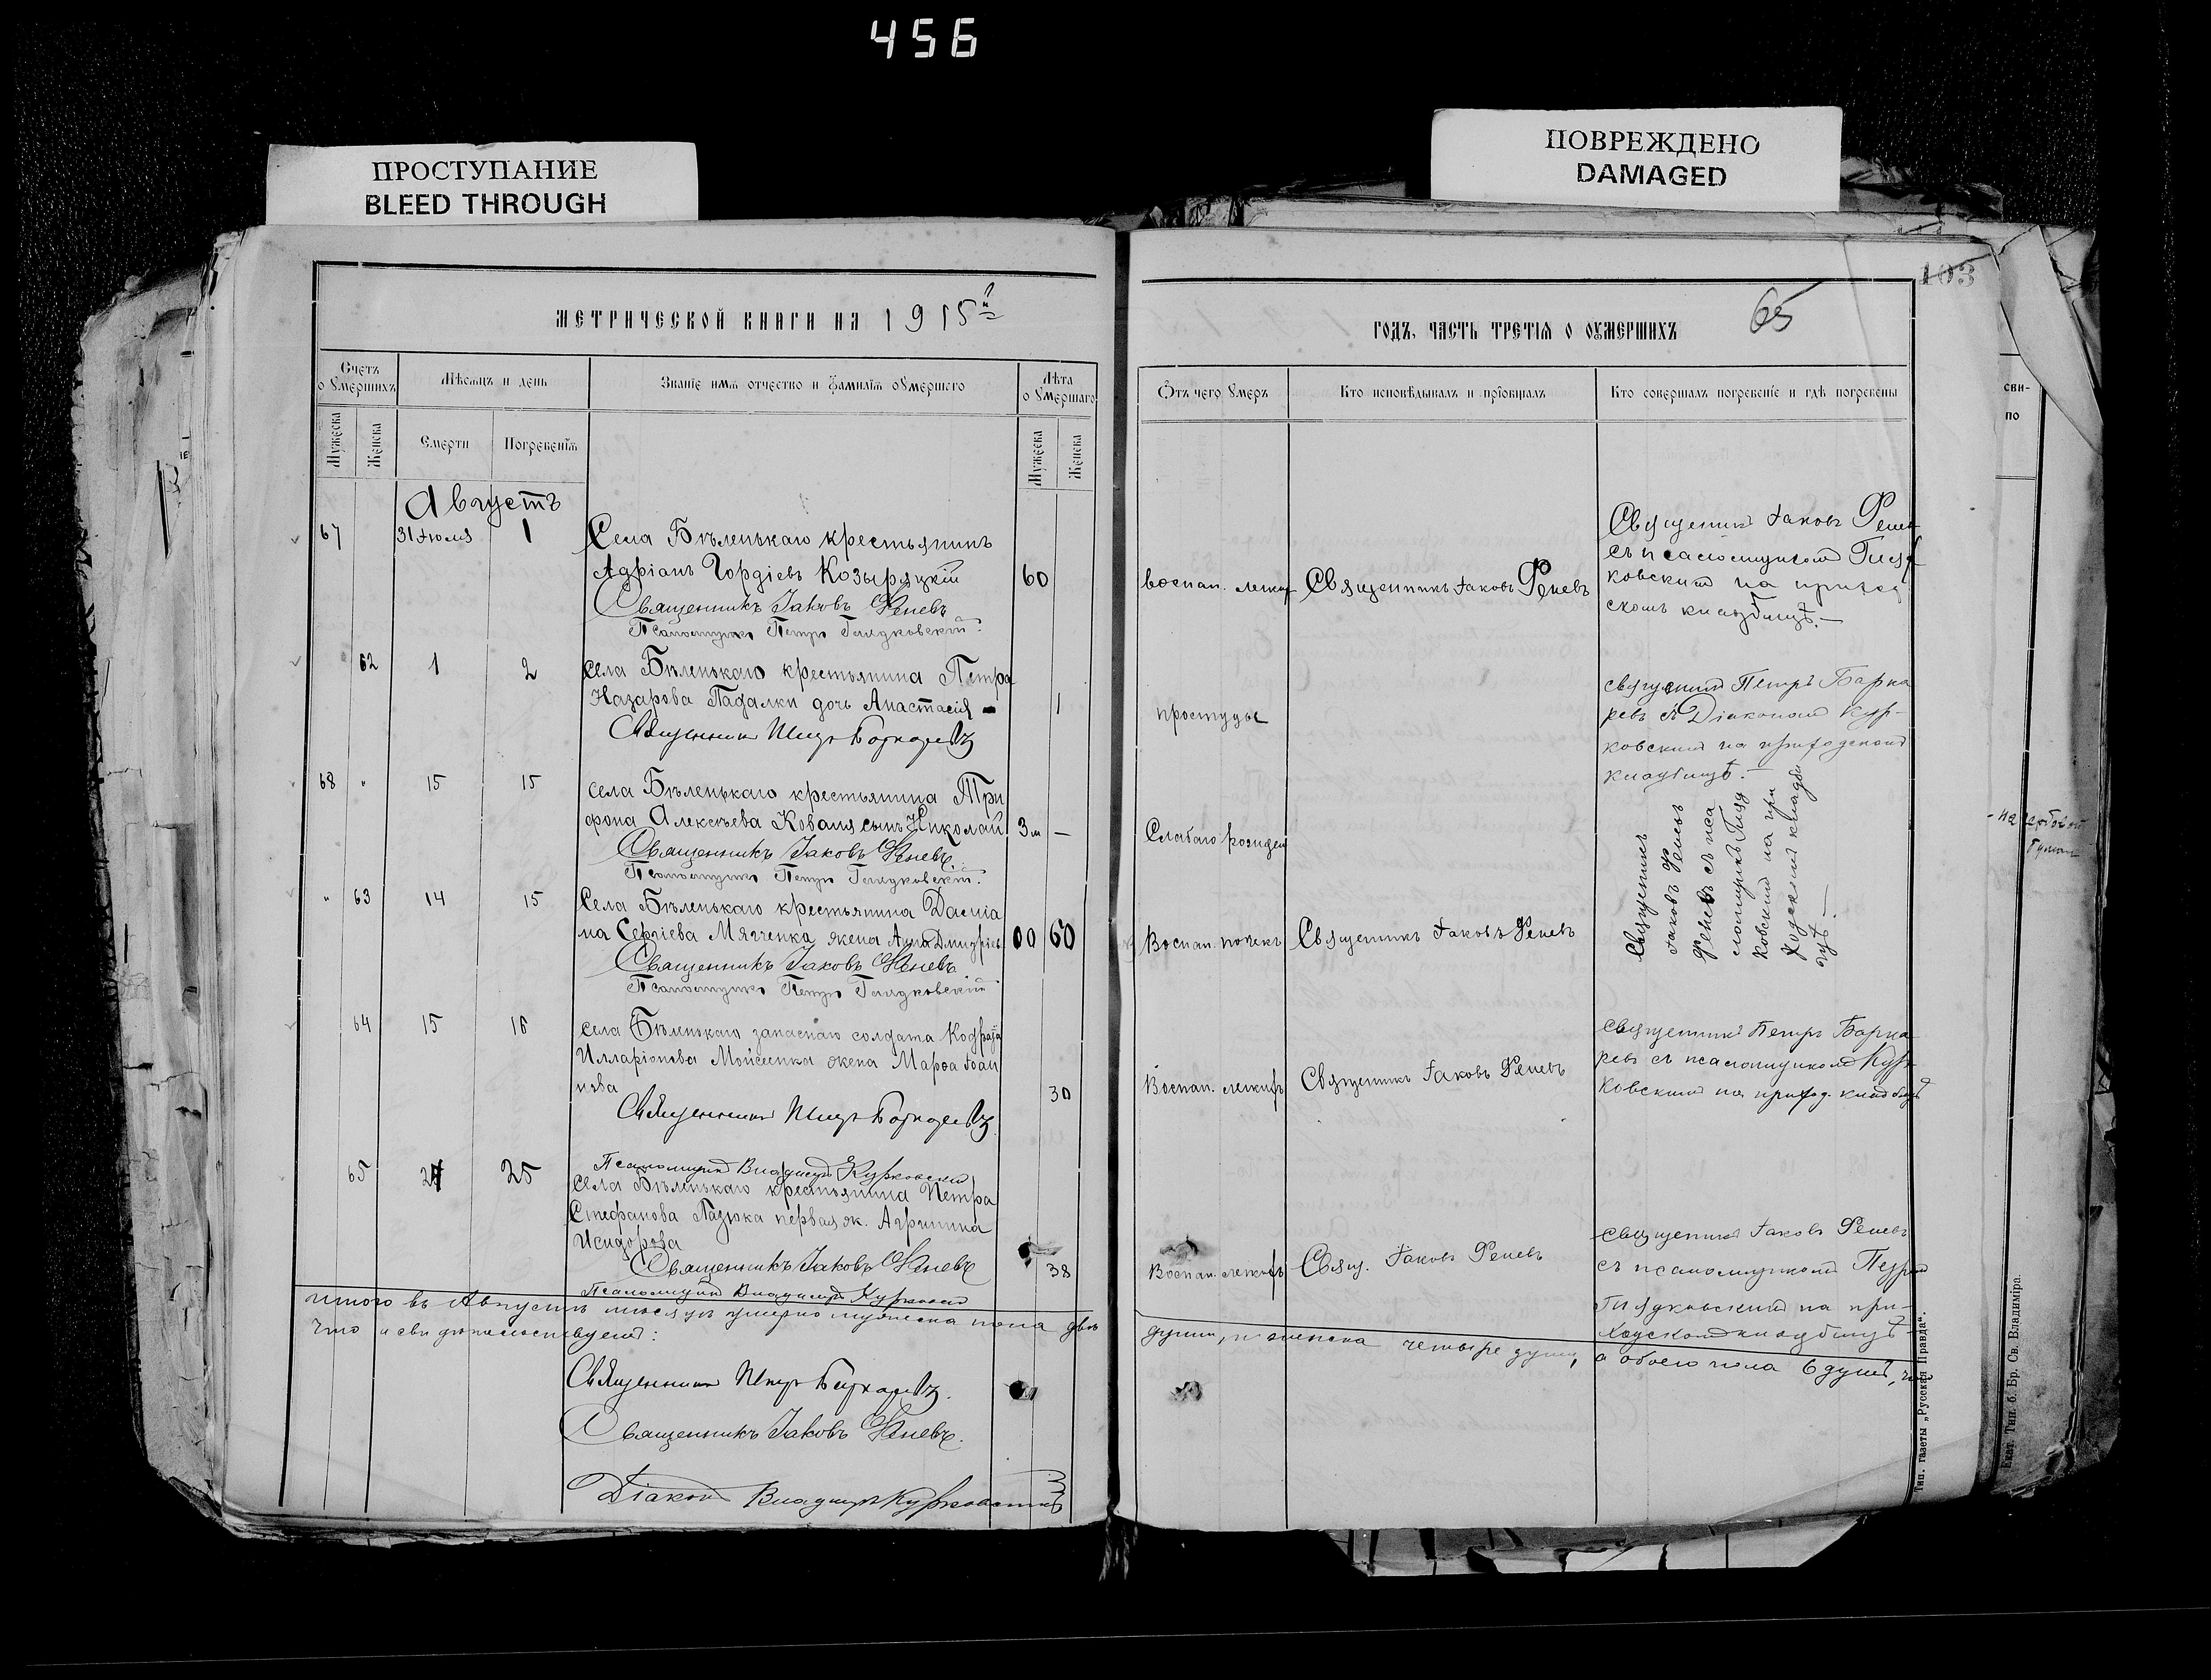 456
ПРОСТУПАНИЕ
BLEED THROUGH
ПОВРЕЖДЕНО
DAMAGED
МЕТРИЧЕСКОЙ КНИГИ НА 1915й
Счетъ оумершихъ
Мѣсяцъ и день
Званіе имя отчество и фамилія оумершего
Лѣта оумершаго
Мужеска
Женска
Смерти
Погребенія
Мужеска
Женска
Августъ
67 31 Июля 1 Села Бѣленькаго крестьянинъ
Адріанъ Гордіевъ Козыряцкій 60
Священникъ Іаковъ Феневъ
Псаломщикъ Петръ Глядковскій.
62 1 2 села Бѣленькаго крестьянина Петра
Назарова Падалки дочь Анастасія 1
Священникъ Петръ
68 " 15 15 села Бѣленькаго крестьянина Три
фона Алексѣева Коваля сынъ Николай 3 м —
Священникъ Іаковъ Феневъ.
Псаломщикъ Петръ Глядковскій.
" 63 14 15 Села Бѣленькаго крестьянина Даміа
на Сергіева Мягченка жена Анна Дмитріев. 60
Священникъ Іаковъ Феневъ
Псаломщикъ Петръ Глядковскій
64 15 16 села Бѣленькаго запаснаго солдата
Илларіонова Мойсеенка жена Марѳа Іоан
нова 30
Священникъ Петръ
Псаломщикъ Владиміръ Курковскій
65 24 25 села Бѣленькаго крестьянина Петра
Стефанова первая ж. Агрипина
Исидорова
Священникъ Іаковъ Феневъ 38
Псаломщикъ Владиміръ
итого въ Августѣ мѣсяцѣ умерло мужеска пола двѣ
что и свидѣтельствуемъ:
Священникъ Петръ
Священникъ Іаковъ Феневъ.
Діаконъ Владиміръ Курковскій
103
65
ГОДЪ, ЧАСТЬ ТРЕТІЯ О ОУМЕРШИХЪ
Отъ чего умеръ
Кто исповѣдывалъ и пріобщалъ
Кто совершалъ погребеніе и гдѣ погребены
воспал. легких Священникъ Іаковъ Феневъ
Священникъ Іаковъ Фенев
съ псаломщикомъ Гляд
ковскимъ на приход
скомъ кладбищѣ.—
простуды
священникъ Петръ
ревъ съ Діакономъ Кур-
ковскимъ на приходскомъ
кладбищѣ.—
Слабаго рожден
Священникъ
Іаковъ Феневъ
Феневъ съ пса
ломщик. Гляд
ковскимъ на при
ходскомъ кладби
щѣ.—
Воспал. почекъ Священникъ Іаковъ Феневъ
Воспал. легкихъ Священникъ Іаковъ Феневъ
священникъ Петръ
ревъ съ псаломщикомъ Кур
ковскимъ на приход. кладбищѣ
Воспал. легкихъ Свящ. Іаковъ Феневъ
священникъ Іаковъ Феневъ
съ псаломщикомъ Петром
Глядковскимъ на при-
ходскомъ кладбищѣ
души, и женска четыре души, а обоего пола 6 душъ,
Тип. газеты „Русская Правда“.
Екат. Тип. б. Бр. Св. Владиміра.
сви-
по